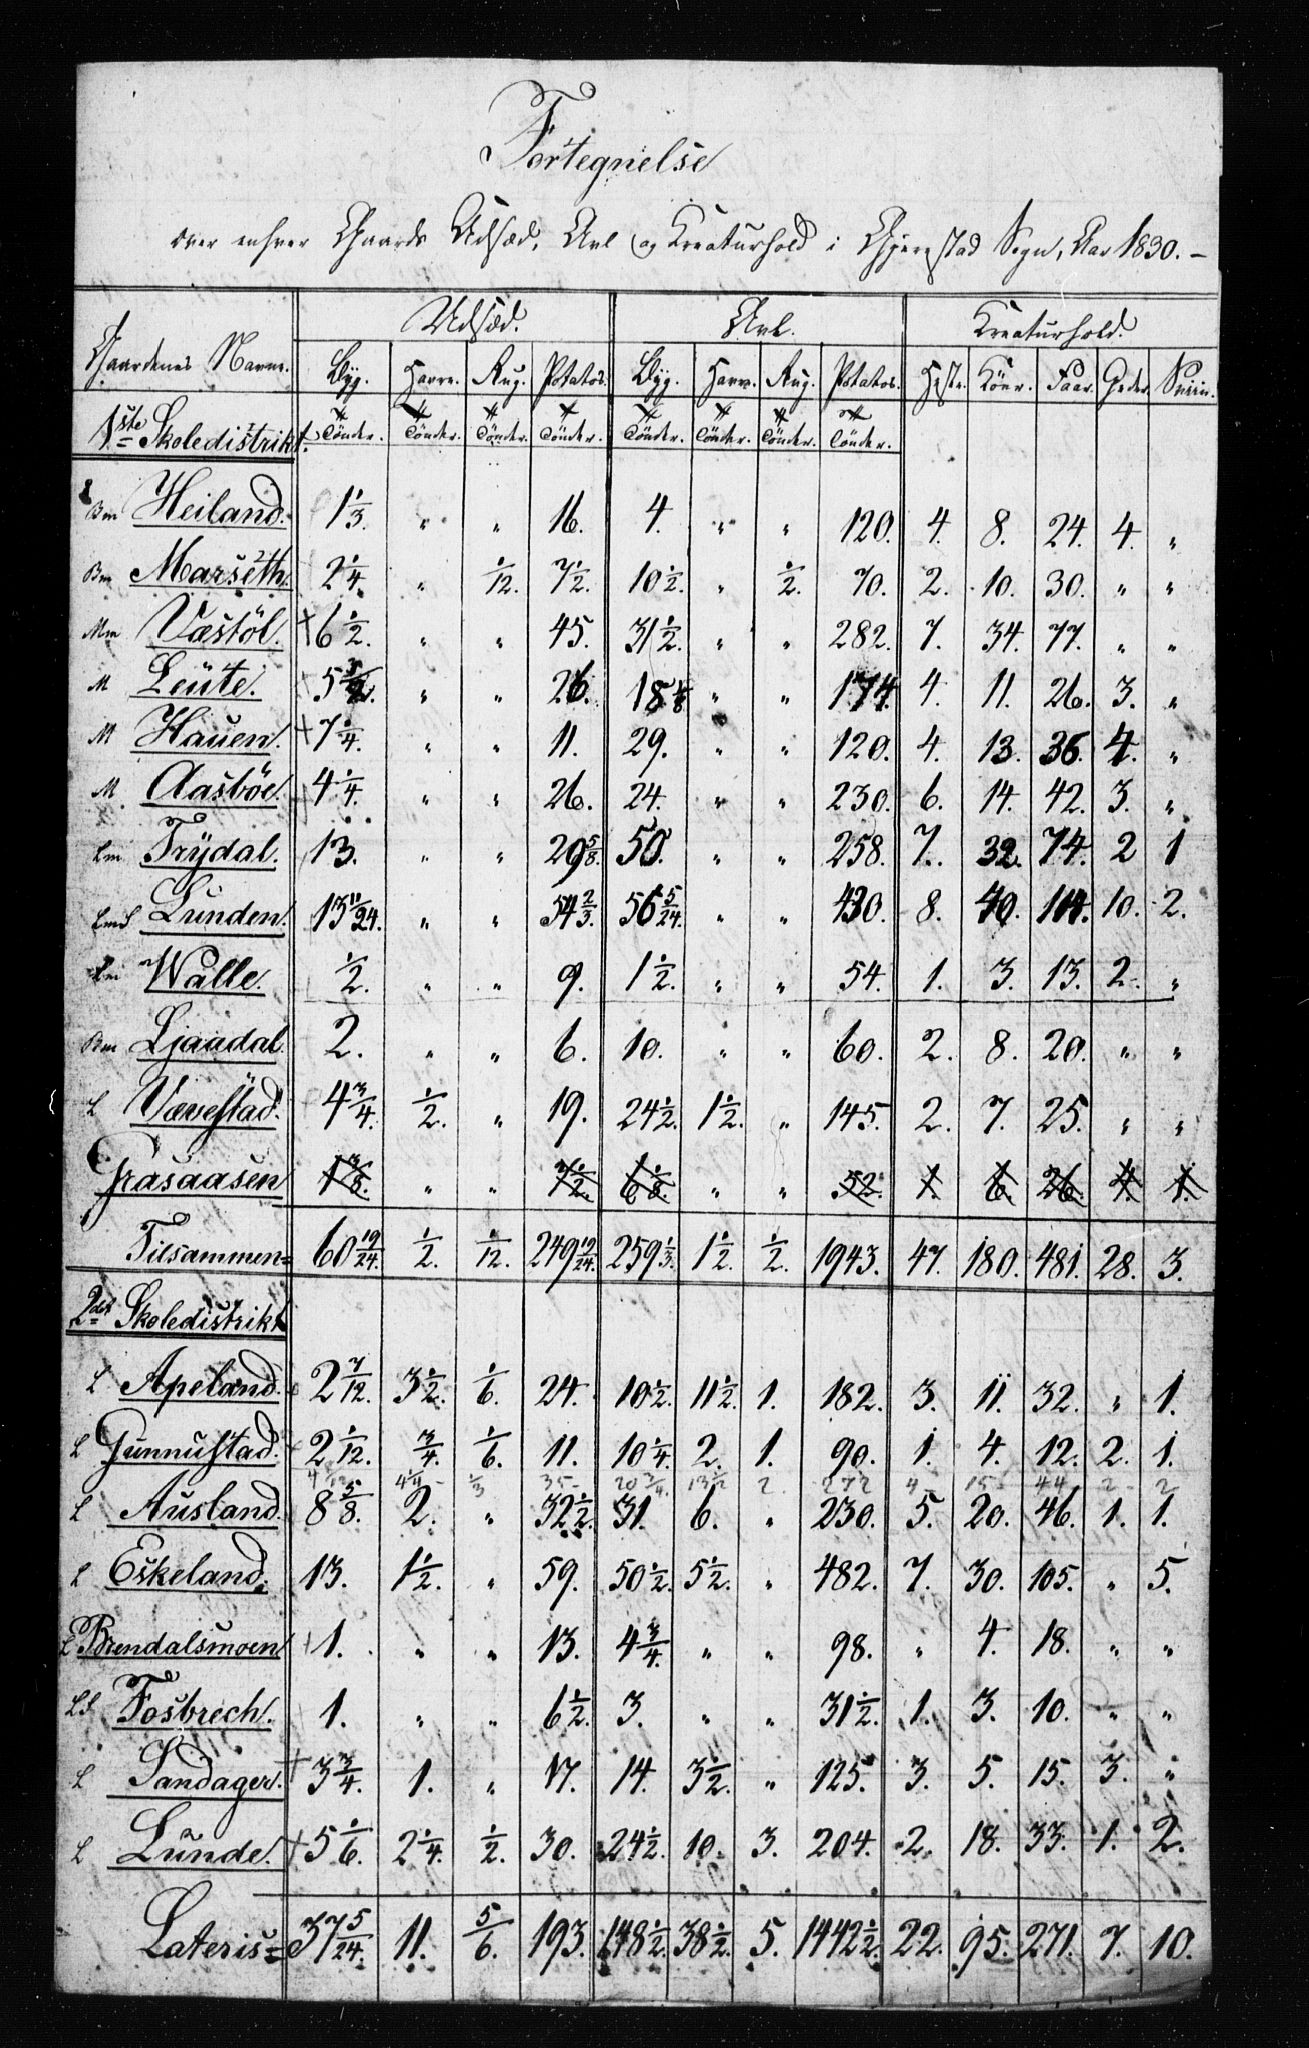 Fortegnelse
over enhver Gaards Udsæd, Avl og Kreaturhold i Gjerestad Sogn, Aar 1830. –
Gaardenes Navne. Udsæd. Avl. Kreaturhold.
Byg. Havre. Rug. Potatos. Byg. Havre. Rug. Potatos. Heste. Köer. Faar. Geder. Sviin.
1ste Skoledistrikt. Tönder. Tönder. Tönder. Tönder. Tönder. Tönder. Tönder. Tönder.
Bm Heiland. 1 1/3. " " 16. 4. " " 120. 4. 8. 24. 4. "
Bm Marseth. 2 1/4. " 1/12. 7 1/2. 10 1/2. " 1/2. 70. 2. 10. 30. " "
Mm Væstöl. + 6 1/2. " " 45. 31 1/2. " " 282. 7. 34. 77. " "
M Leüte. + 5 " " 26. 18 1/8 " " 174. 4. 11. 26. 3. "
M Hauen. + 7 1/4. " " 11. 29. " " 120. 4. 13. 36. 4. "
M. Aasböe. + 4 1/4. " " 26. 24. " " 230. 6. 14. 42. 3. "
Lm Trydal. 13. " " 29 5/8. 50. " " 258. 7. 32. 74. 2 1
LmS Lunden. 13 11/24. " " 54 2/3. 56 5/24. " " 430. 8. 40. 104. 10. 2.
Lm Walle. 1/2. " " 9. 1 1/2. " " 54. 1. 3. 13. 2. "
Bm Ljaadal. 2. " " 6. 10. " " 60. 2. 8. 20. " "
L Vævestad. 4 3/4. 1/2. " 19. 24 1/2. 1 1/2. " 145. 2. 7. 25. " "
Grasaasen 1 3/8. " " 7 1/2. 6 1/8. " " 52. 1. 6. 26. 4. 1.
Tilsammen = 60 19/24. 1/2. 1/12. 249 19/24. 259 1/3. 1 1/2. 1/2. 1943. 47. 180. 481. 28. 3.
2det Skoledistrikt
L Apeland. 2 7/12. 3 1/2. 1/6. 24. 10 1/2. 11 1/2. 1. 182. 3. 11. 32. " 1.
L Gunnustad. 2 1/12. 3/4. 1/6. 11. 10 1/4. 2. 1. 90. 1. 4. 12. 2. 1.
4 4 1/4 1/3 35 20 3/4. 13 1/2 2 272 4 15 44 2 2
L Ausland. 8 5/8. 2. " 32 1/2. 31. 6. " 230. 5. 20. 46. 1. 1.
L Eskeland. 13. 1 1/2. " 59. 50 1/2. 5 1/2. " 482. 7. 30. 105. " 5.
L Brendalsmoen + 1. " " 13. 4 3/4. " " 98. " 4. 18. " "
LS Fosbrech. 1. " " 6 1/2. 3. " " 31 1/2. 1. 3. 10. " "
L Sandager. + 3 3/4. 1. " 17. 14. 3 1/2. " 125. 3. 5. 15. 3. "
L Lünde. + 5 1/6. 2 1/4. 1/2. 30. 24 1/2. 10. 3. 204. 2. 18. 33. 1. 2.
Lateris = 37 5/24. 11. 5/6. 193. 148 1/2. 38 1/2. 5. 1442 1/2. 22. 95. 271. 7. 10.